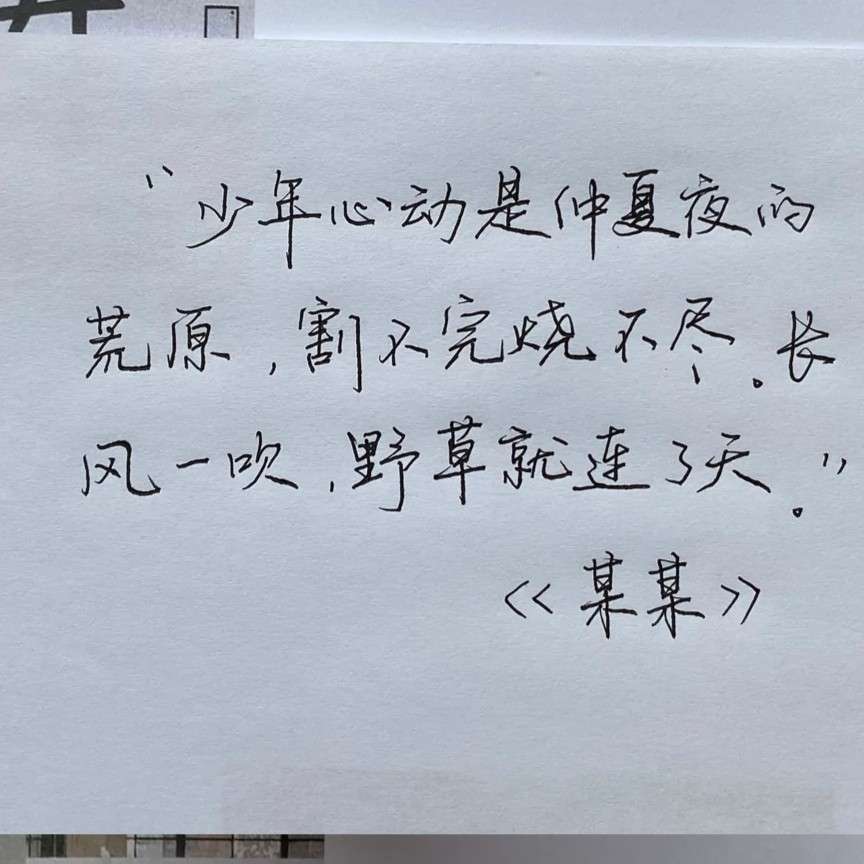 “少年心动是仲夏夜的
荒原，割不完烧不尽。长
风一吹，野草就连了天。”
《某某》